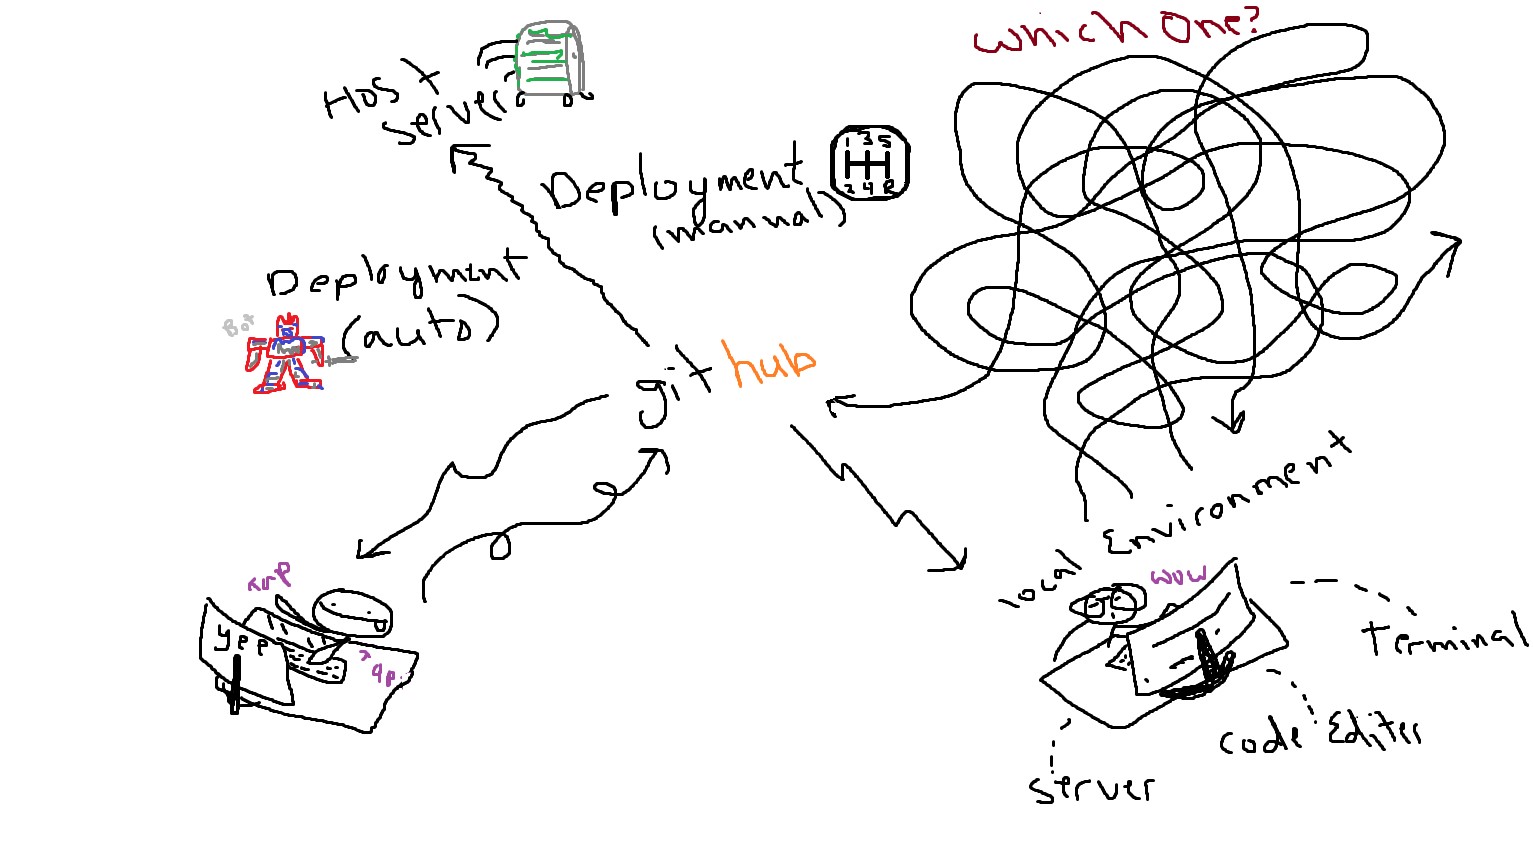 Which One?
Host
server
1 3 5
2 4 R
Deployment
(manual)
Deployment
(auto)
Bot
git hub
local Environment
wow
Terminal
code Editer
server
yep